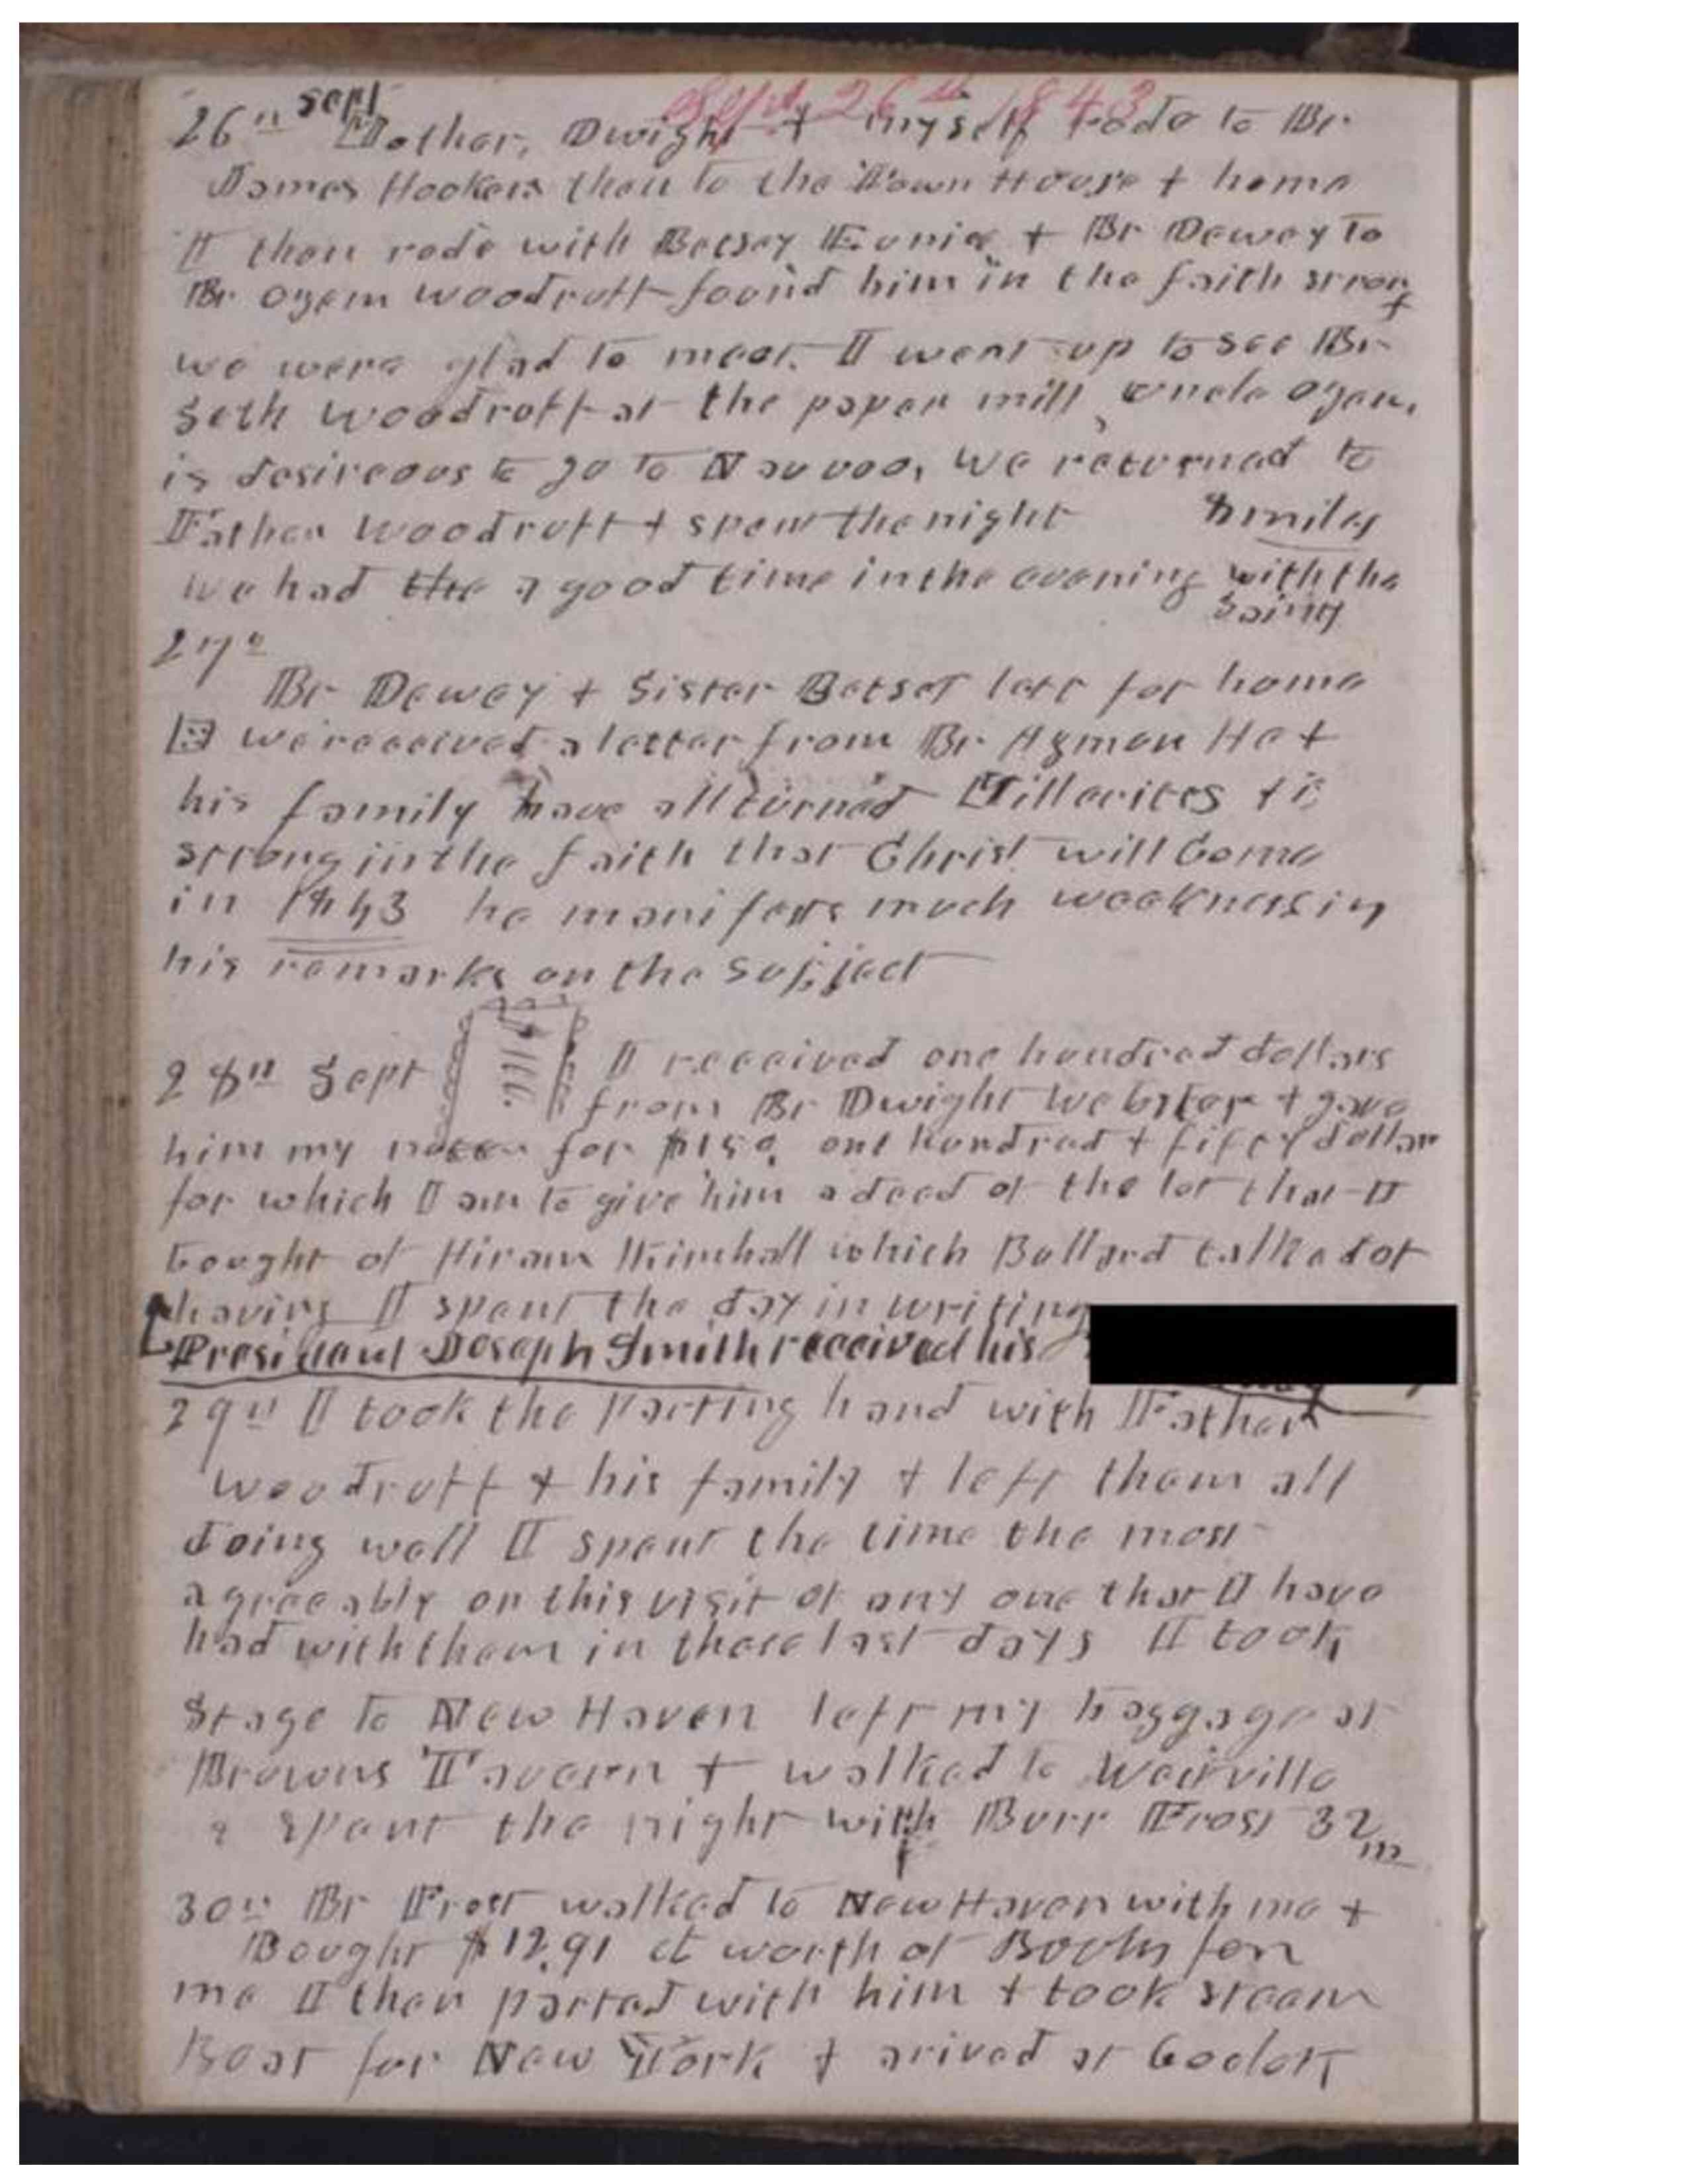 Sept. 26th 1843
26th sept Mother, Dwight & myself rode to Br
James Hookers then to the Town House & home
I then rode with Betsey Eunice & Br Dewey to
Br Ozem Woodruff found him in the faith strong &
we were glad to meet. I went up to see Br
Seth Woodruff at the paper mill, uncle Ozem,
is desireous to go to Nauvoo, we returned to
Father Woodruff & spent the night 8 miles
we had the a good time in the evening with the
Saints
27th
Br Dewey & Sister Betsey left for home
we received a letter from Br Azmon He &
his family have all turned Millerites & is
strong in the faith that Christ will Come
in 1843 he manifests much weakness in
his remarks on the subject
28th Sept I received one hundred dollars
from Br Dwight Webster & gave
him my note for $150, one hundred & fifty dollar
for which I am to give him a deed of the lot that I
bought of Hiram Kimball which Ballard talked of
having I spent the day in writing
President Joseph Smith received his
29th I took the parting hand with Father
Woodruff & his family & left them all
doing well I spent the time the most
agreeably on this visit of any one that I have
had with them in these last days I took
Stage to New Haven left my baggage at
Browns Tavern & walked to Westville
& spent the night with Burr Frost 32 m
30th Br Frost walked to New Haven with me &
Bought $12,91 ct worth of Books for
me I then parted with him & took steam
Boat for New York & arived at